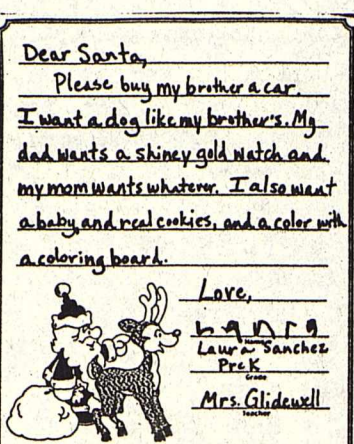 Dear Santa,
Please buy my brother a car.
I want a dog like my brother's. My
dad wants a shiney gold watch and
my mom wants whatever. I also want
a baby and real cookies, and a color with
a coloring board.
Love,
Laura Sanchez
Name
PreK
Grade
Mrs. Glidewell
Teacher